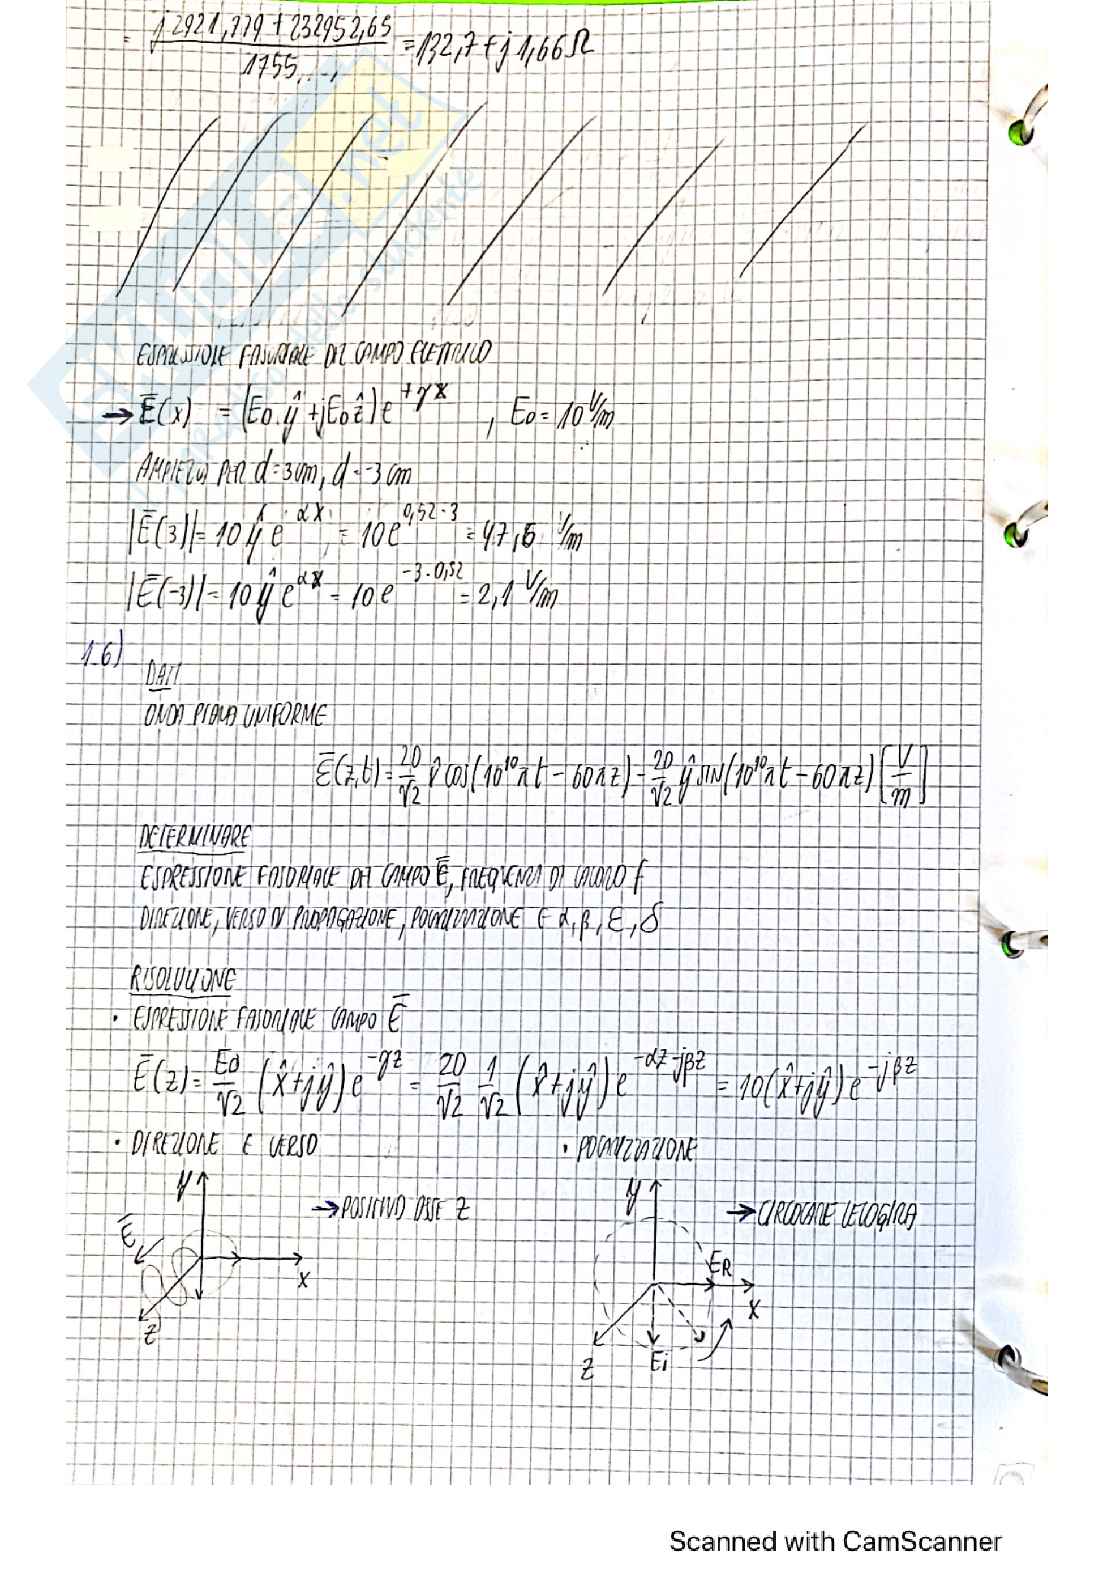 = j2921,779 + 232952,65 / 1755... = 132,7 + j1,66 Ω
ESPRESSIONE FASORIALE DEL CAMPO ELETTRICO
→ Ē(x) = (E0 ŷ + jE0 ẑ) e^{+γx} , E0 = 10 V/m
AMPIEZZA PER d = 3 cm, d = -3 cm
|Ē(3)| = 10 ŷ e^{αx} = 10 e^{0,52·3} = 47,6 V/m
|Ē(-3)| = 10 ŷ e^{αx} = 10 e^{-3·0,52} = 2,1 V/m
1.6)
DATI
ONDA PIANA UNIFORME
Ē(z,t) = 20/√2 x̂ cos(10^{10}πt - 60πz) - 20/√2 ŷ sin(10^{10}πt - 60πz) [V/m]
DETERMINARE
ESPRESSIONE FASORIALE DEL CAMPO Ē, FREQUENZA DI LAVORO f
DIREZIONE, VERSO DI PROPAGAZIONE, POLARIZZAZIONE E α, β, ε, δ
RISOLUZIONE
· ESPRESSIONE FASORIALE CAMPO Ē
Ē(z) = E0/√2 (x̂+jŷ) e^{-γz} = 20/√2 1/√2 (x̂+jŷ) e^{-αz-jβz} = 10(x̂+jŷ) e^{-jβz}
· DIREZIONE E VERSO · POLARIZZAZIONE
y → POSITIVO ASSE Z y → CIRCOLARE LEVOGIRA
Ē x z
ER x z Ei
Scanned with CamScanner